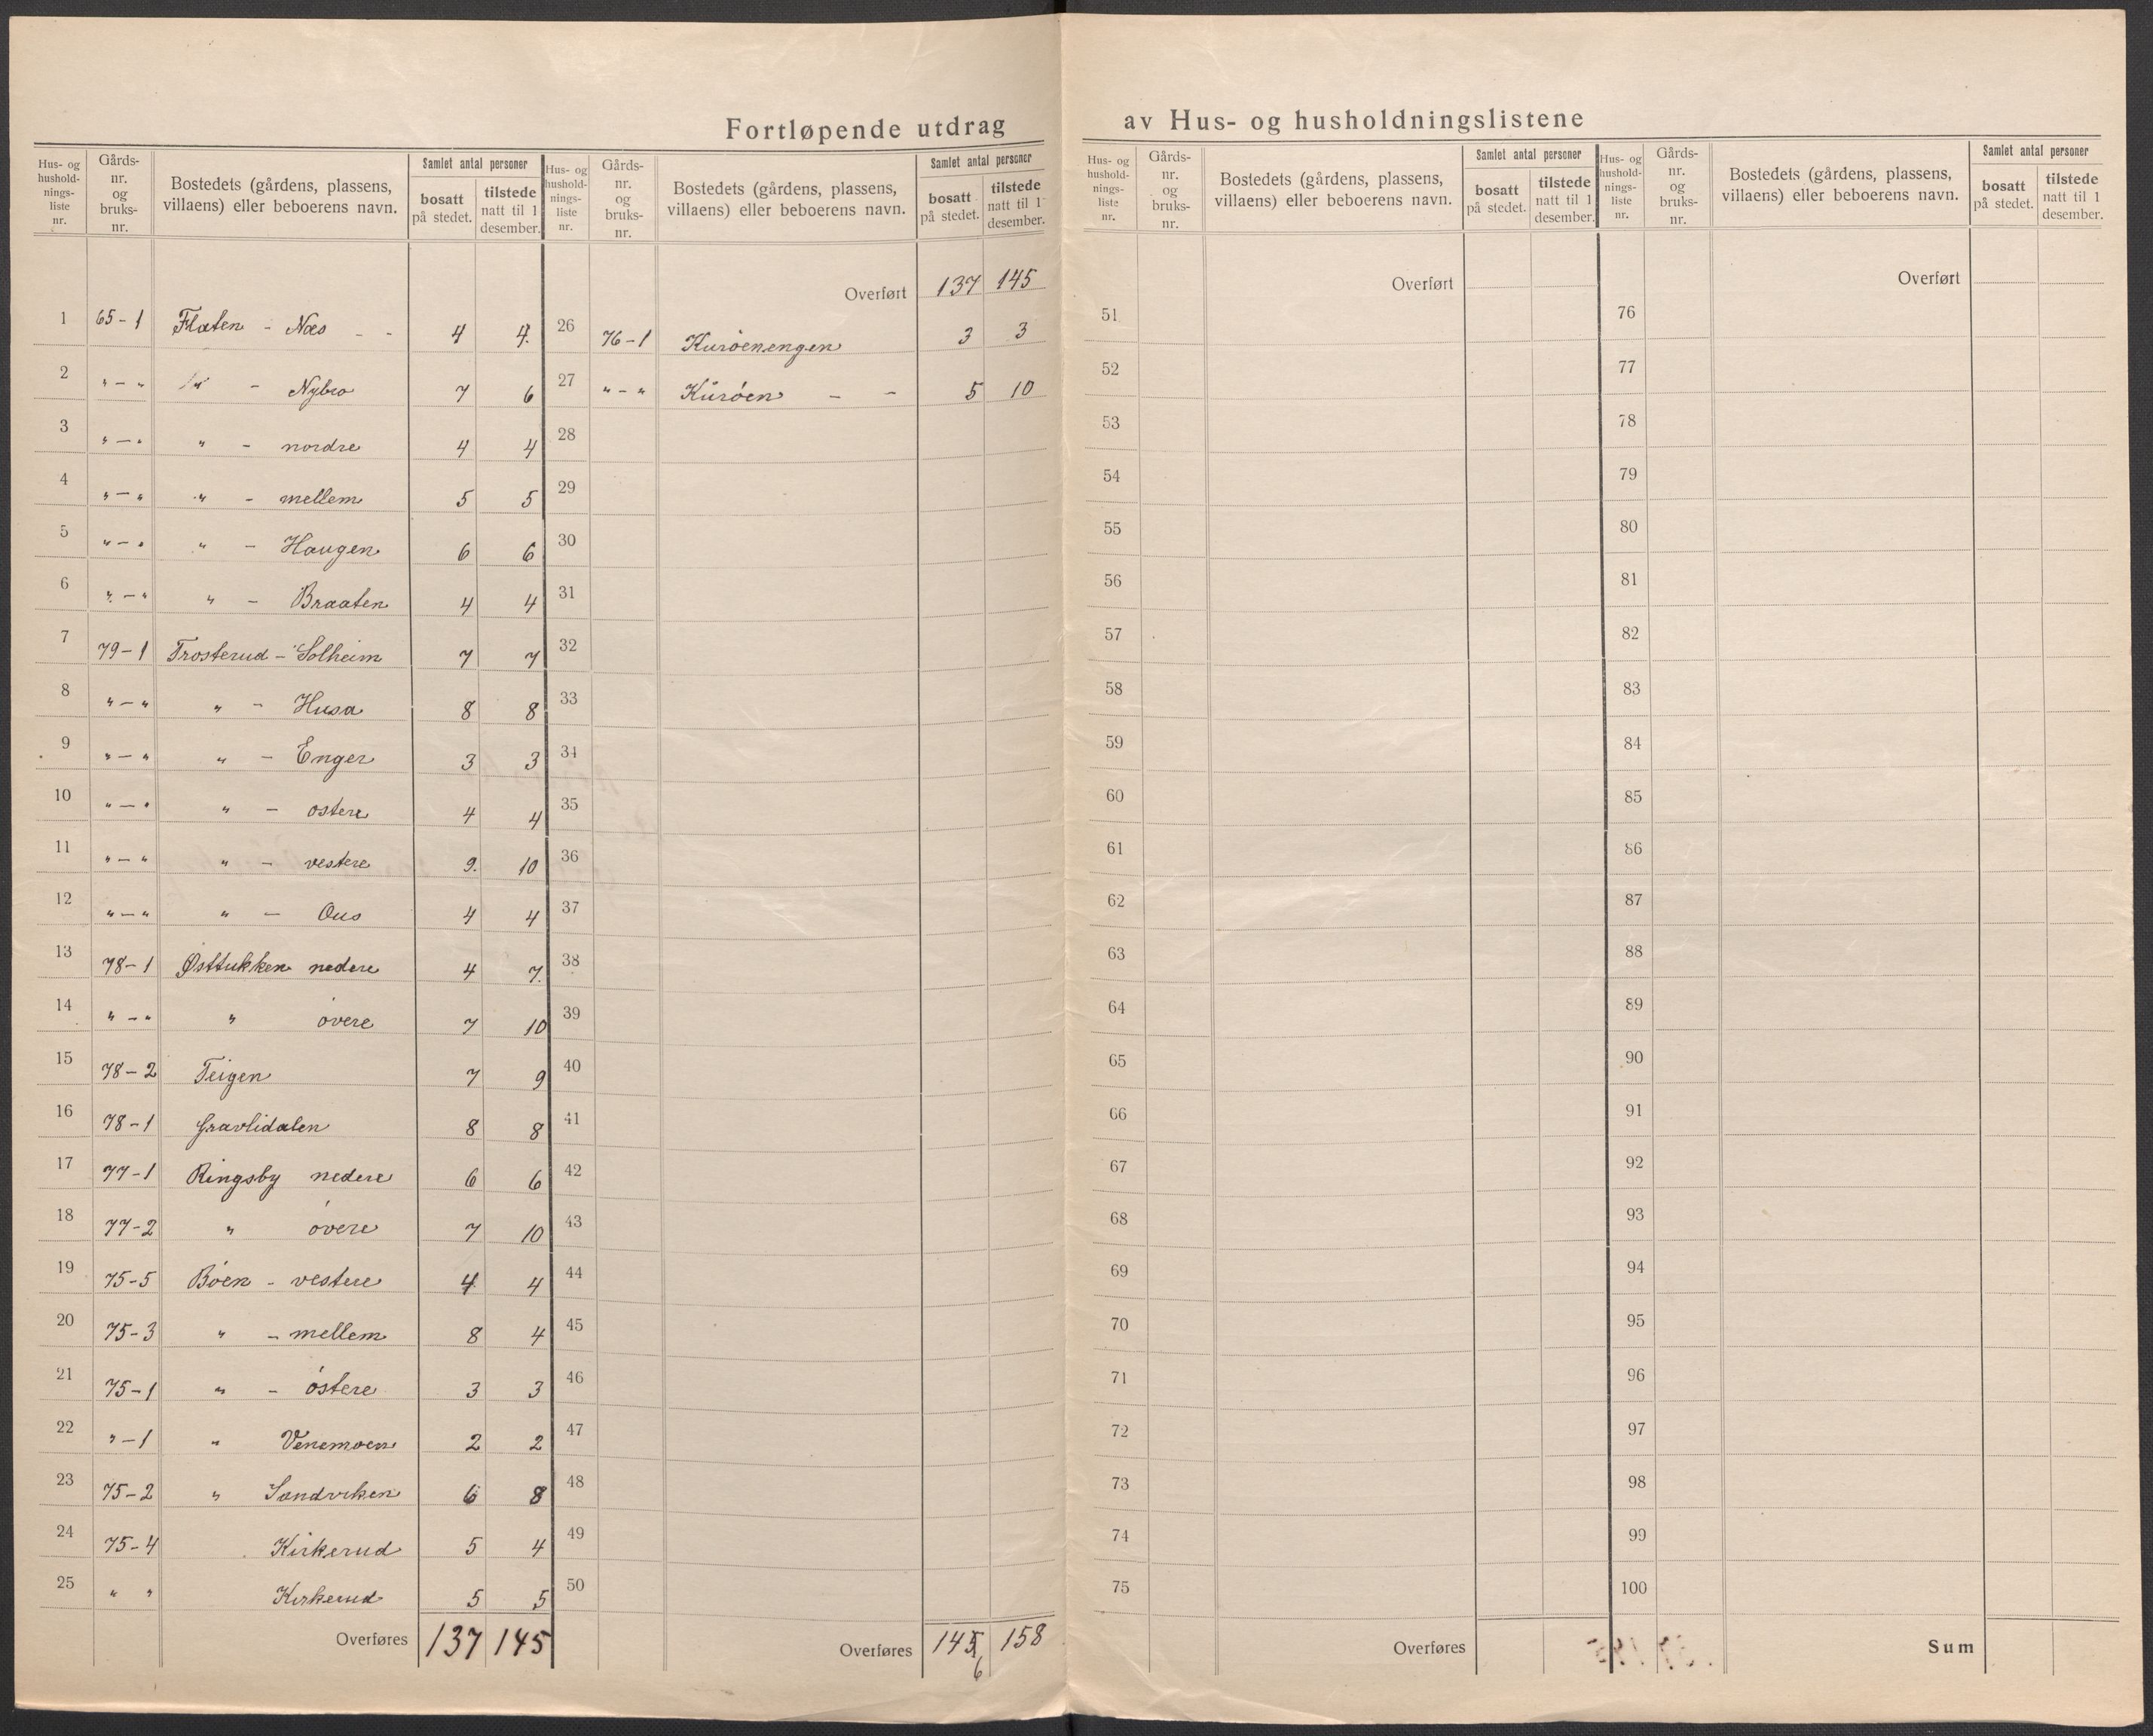 Fortløpende utdrag av Hus- og husholdningslistene
Hus- og hushold- nings- liste nr. | Gårds- nr. og bruks- nr. | Bostedets (gårdens, plassens, villaens) eller beboerens navn. | Samlet antal personer | bosatt på stedet. | tilstede natt til 1 desember.
1 65-1 Flaten - Næs - - 4 4.
2 " - " " - Nybro 7 6
3 " - " " - nordre 4 4
4 " - " " - mellem 5 5
5 " - " " - Haugen 6 6
6 " - " " - Braaten 4 4
7 79-1 Trosterud - Solheim 7 7
8 " - " " - Husa 8 8
9 " - " " - Enger 3 3
10 " - " " - østere 4 4
11 " - " " - vestere 9. 10
12 " - " " - Ous 4 4
13 78-1 Østtukken nedere 4 7.
14 " - " " øvere 7 10
15 78-2 Teigen 7 9
16 78-1 Gravlidalen 8 8
17 77-1 Ringsby nedere 6 6
18 77-2 " øvere 7 10
19 75-5 Bøen - vestere 4 4
20 75-3 " - mellem 8 4
21 75-1 " - østere 3 3
22 " -1 " Venemoen 2 2
23 75-2 " Sandviken 6 8
24 75-4 Kirkerud 5 4
25 " " Kirkerud 5 5
Overføres 137 145
Hus- og hushold- nings- liste nr. | Gårds- nr. og bruks- nr. | Bostedets (gårdens, plassens, villaens) eller beboerens navn. | Samlet antal personer | bosatt på stedet. | tilstede natt til 1 desember.
Overført 137 145
26 76-1 Kurøenengen 3 3
27 " - " Kurøen - - 5 10
28
29
30
31
32
33
34
35
36
37
38
39
40
41
42
43
44
45
46
47
48
49
50
Overføres 145 158
6
Hus- og hushold- nings- liste nr. | Gårds- nr. og bruks- nr. | Bostedets (gårdens, plassens, villaens) eller beboerens navn. | Samlet antal personer | bosatt på stedet. | tilstede natt til 1 desember.
Overført
51
52
53
54
55
56
57
58
59
60
61
62
63
64
65
66
67
68
69
70
71
72
73
74
75
Overføres
Hus- og hushold- nings- liste nr. | Gårds- nr. og bruks- nr. | Bostedets (gårdens, plassens, villaens) eller beboerens navn. | Samlet antal personer | bosatt på stedet. | tilstede natt til 1 desember.
Overført
76
77
78
79
80
81
82
83
84
85
86
87
88
89
90
91
92
93
94
95
96
97
98
99
100
Sum